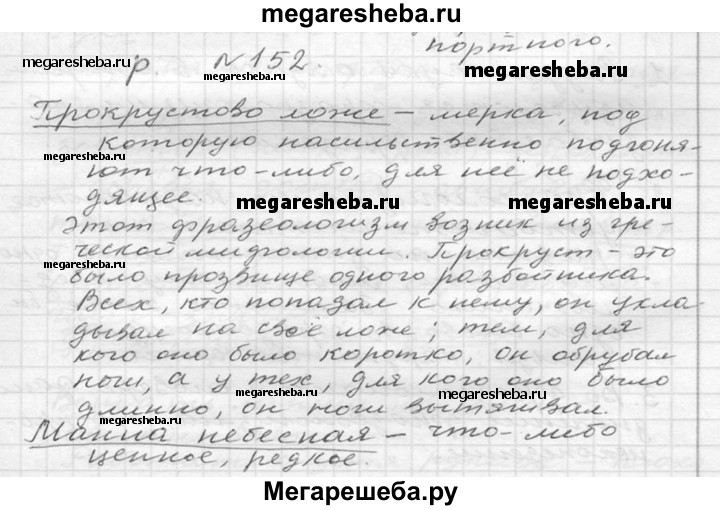 megaresheba.ru
портного.
р. №152.
megaresheba.ru
Прокрустово ложе – мерка, под
которую насильственно подгоня-
megaresheba.ru
megaresheba.ru
ют что-либо, для неё не подхо-
дящее.
megaresheba.ru
megaresheba.ru
Этот фразеологизм возник из гре-
ческой мифологии. Прокруст – это
megaresheba.ru
было прозвище одного разбойника.
Всех, кто попадал к нему, он укла-
дывал на своё ложе; тем, для
кого оно было коротко, он обрубал
ноги, а у тех, для кого оно было
megaresheba.ru
megaresheba.ru
длинно, он ноги вытягивал.
Манна небесная – что-либо
ценное, редкое.
megaresheba.ru
Мегарешеба.ру